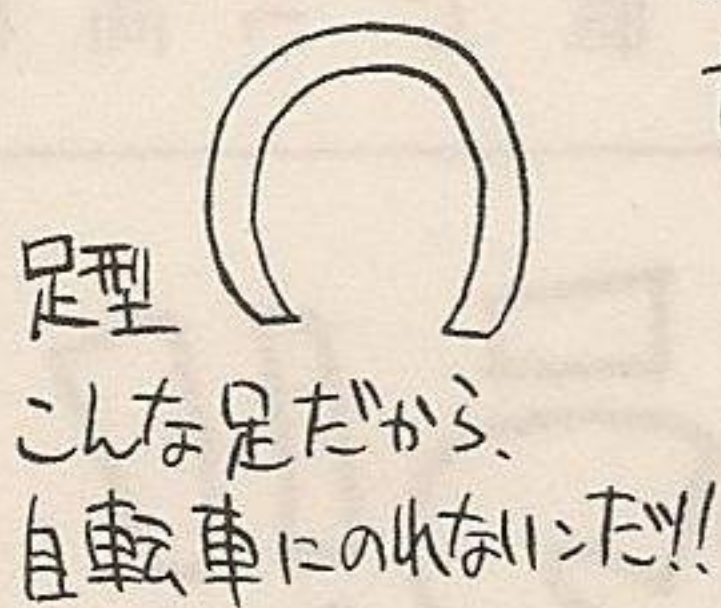 足型
こんな足だから、
自転車にのれないンだッ!!